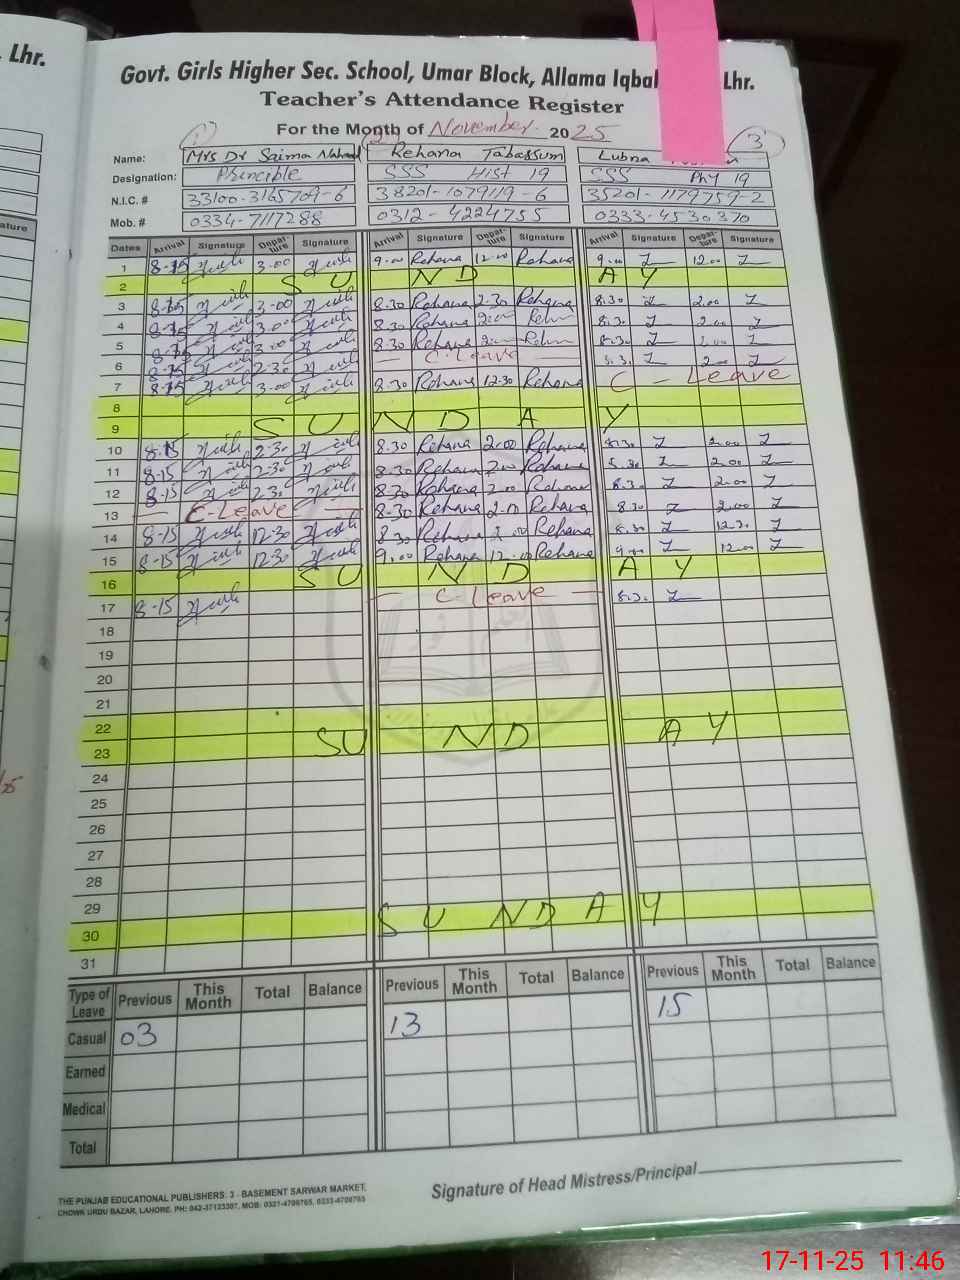 . Lhr.
Govt. Girls Higher Sec. School, Umar Block, Allama Iqbal Lhr.
Teacher's Attendance Register
For the Month of November. 2025
1 3
Name: Mrs Dr Saima Rehana Tabassum Lubna
Designation: Phincible SSS Hist 19 SSS Phy 19
N.I.C. # 33100-3165709-6 38201-1079119-6 35201-1179759-2
Mob. # 0334-7117288 0312-4224755 0333-4530370
Dates Arrival Signature Depar-ture Signature Arrival Signature Depar-ture Signature Arrival Signature Depar-ture Signature
1 8-15 3-00 9-00 Rehana 12-00 Rehana 9-00 12-00
2 SUNDAY
3 8-15 3-00 8.30 Rehana 2-30 Rehana 8.30 2.00
4 3-00 8.30 Rehana 2-00 8.30 2.00
5 8.30 Rehana 2-00
6 8-15 2-30 C-Leave 2-00
7 8-15 3-00 8.30 Rehana 12-30 Rehana C-Leave
8
9 SUNDAY
10 8-15 2-30 8.30 Rehana 2.00 Rehana 8.30 2.00
11 8-15 2-30 8.30 Rehana 2.00 Rehana 8.30 2.00
12 8-15 2-30 8.30 Rehana 2.00 Rehana 8.30 2.00
13 C-Leave 8.30 Rehana 2-00 Rehana 8.30 2.00
14 8-15 12-30 8.30 Rehana 2.00 Rehana 8.30 12.30
15 8-15 12-30 9.00 Rehana 12-00 Rehana 9-00 12-00
16 SUNDAY
17 8-15 C-Leave 8.30
18
19
20
21
22
23 SUNDAY
24
25
26
27
28
29
30 SUNDAY
31
Type of Leave Previous This Month Total Balance Previous This Month Total Balance Previous This Month Total Balance
Casual 03 13 15
Earned
Medical
Total
Signature of Head Mistress/Principal
THE PUNJAB EDUCATIONAL PUBLISHERS: 3 - BASEMENT SARWAR MARKET,
CHOWK URDU BAZAR, LAHORE. PH: 042-37123387, MOB: 0321-4706765, 0333-4706765
17-11-25 11:46